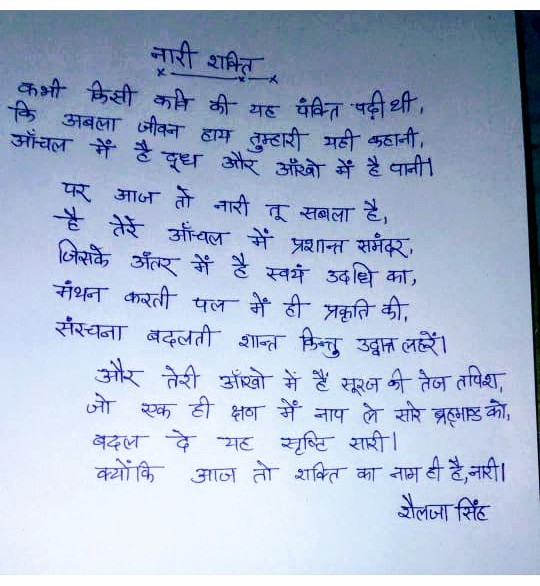 नारी शक्ति
कभी किसी कवि की यह पंक्ति पढ़ी थी,
कि अबला जीवन हाय तुम्हारी यही कहानी,
आँचल में है दूध और आँखो में है पानी।
पर आज तो नारी तू सबला है,
है तेरे आँचल में प्रशान्त समंदर,
जिसके अंतर में है स्वयं उदधि का,
मंथन करती पल में ही प्रकृति की,
संरचना बदलती शान्त किन्तु उद्वान्त लहरें।
और तेरी आँखो में हैं सूरज की तेज तपिश,
जो एक ही क्षण में नाप ले सारे ब्रह्माण्ड को,
बदल दे यह सृष्टि सारी।
क्योंकि आज तो शक्ति का नाम ही है,नारी।
शैलजा सिंह